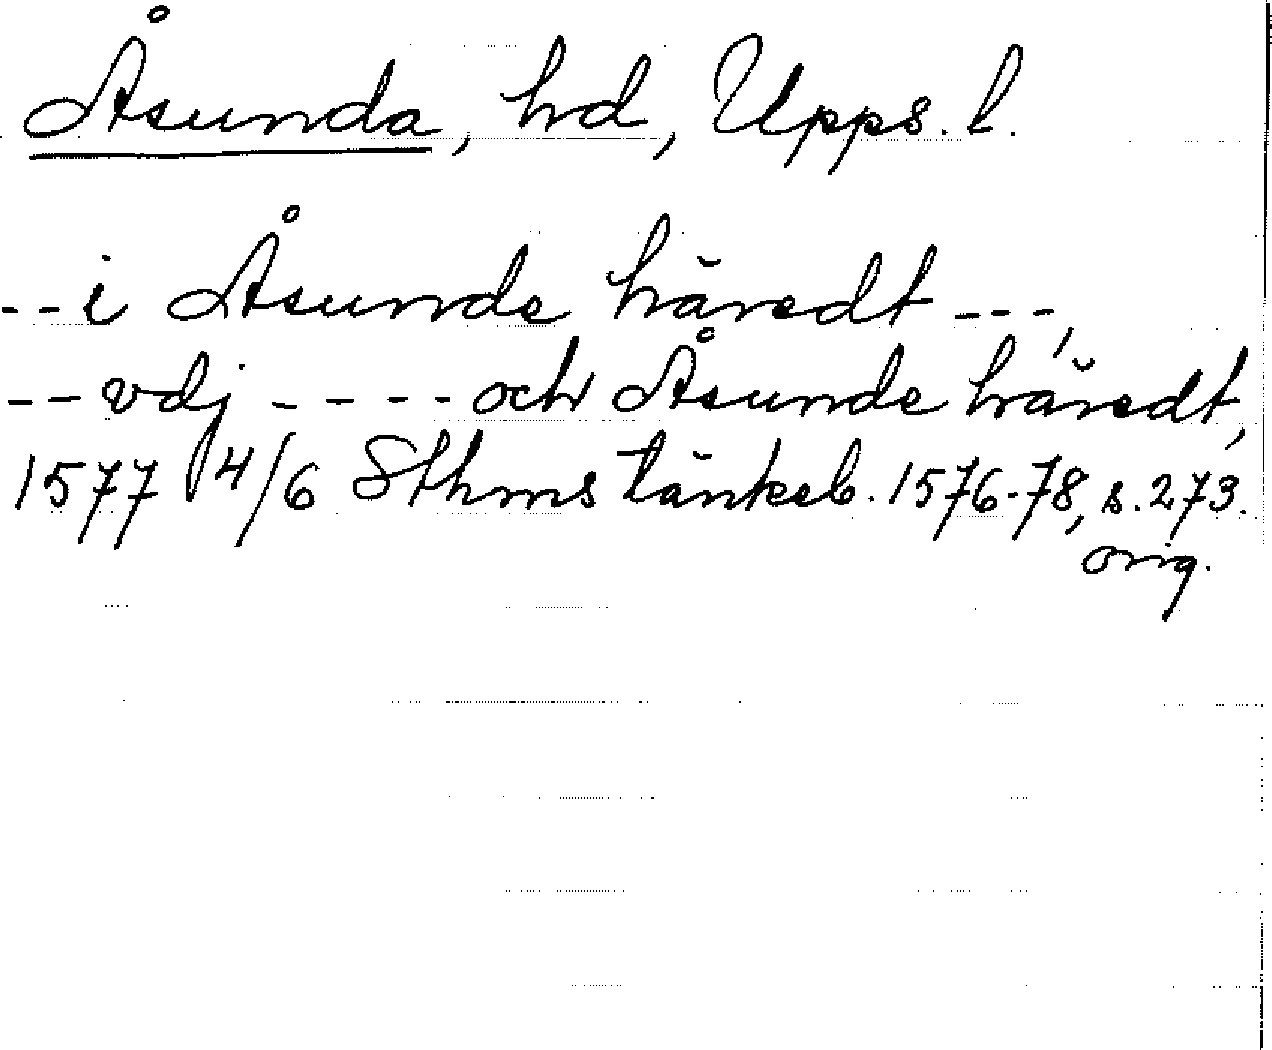 Åsunda, hd, Upps. l.
--i Åsunde häredt ---,
--vdj ---- och Åsunde häredt,
1577 14/6 Sthms tänkeb. 1576-78, s. 273.
orig.